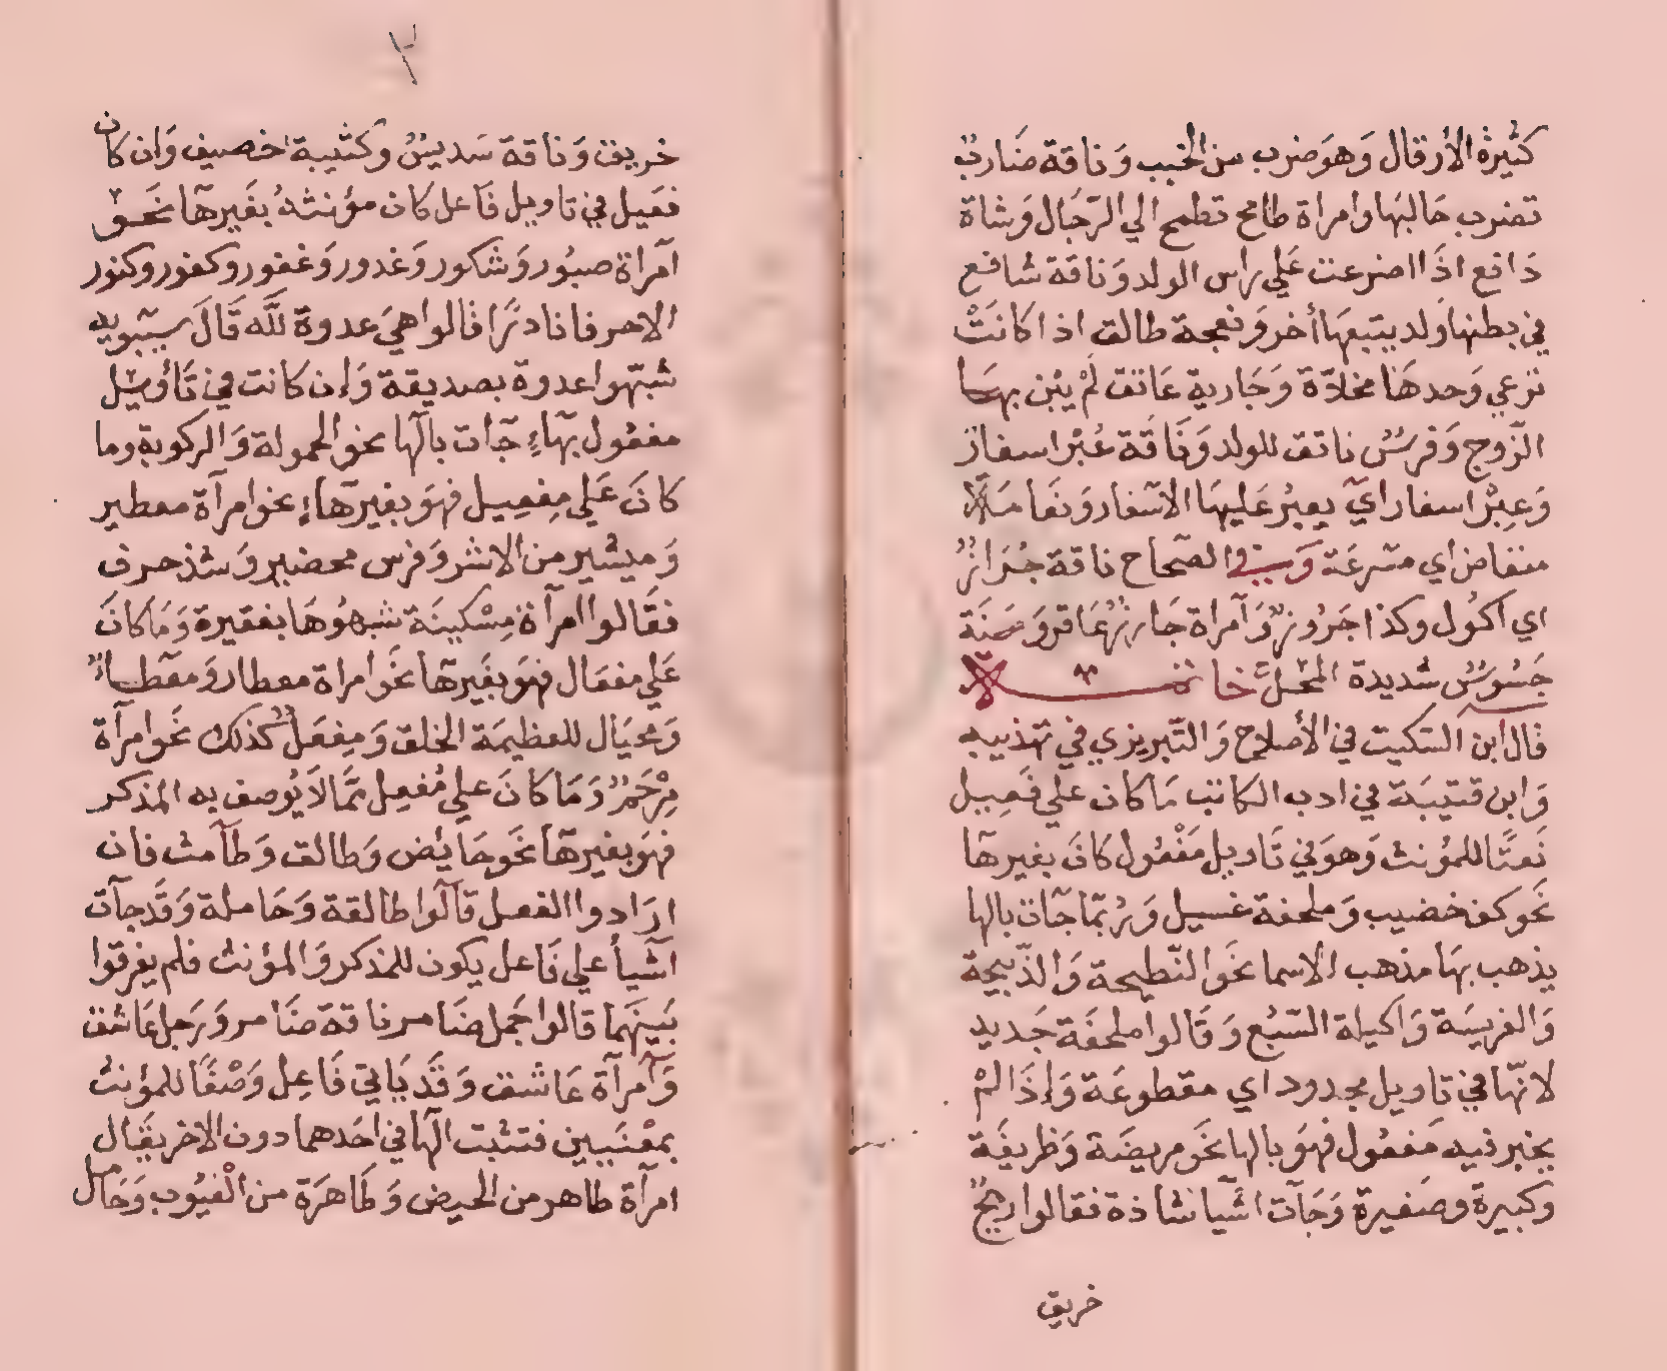 كثيرة الأرقال وَهوَ ضرب من الخبب وَناقة ضَارب
تضرب حَالبهَا وامراة طامح تطمح الي الرّجَال وَشاة
دَافع اذَا اضرعت عَلي راس الولد وَناقة شافع
في بطنها وَلد يتبعهَا أخر وَنعجة طالق اذا كانَتْ
ترعي وَحدهَا مخلاّة وَجَارية عَاتق لمْ يبن بهَا
الزّوج وَفرسٌ ناتق للولد وَنَاقة عُبْر اسفار
وَعِبْر اسفار ايْ يعبرُ عَليهَا الاسفار وَنفَا
منفاض اي مترعَة وَ في الصّحاح ناقة جُرَازٌ
اي اكُول وكذا جَرُوزٌ وَامراة جَارزٌ عَاقر وَسَنَة
جَسُوسٌ شديدة المحل خاتمة
قال ابن السّكيت في الأصلاح وَالتّبريزي في تهذيبه
وَابن قتيبَة في ادب الكاتب مَا كان علي فَعِيل
نَعتًا للمؤنث وَهوَ في تَاويل مَفْعُول كانَ بغير هَا
نَحو كف خضيب وَملحفة غسيل وَرُبّما جَات بالها
يذهب بهَا مذهب الاسما نحَو النّطيحة وَالذّبيحة
وَالفريسَة وَاكيلة السّبُع وَقَالوا ملحفَة جَديد
لانّهَا في تاويل مجدود اي مقطوعَة وَإذَا لمْ
يجز فيه مَفعُول فهوَ بالها نحَو مريضَة وَظريفَة
وكبيرة وصَغيرة وَجَات اشيا شاذة فقالوا ريحٌ
خريق
٢
خريق وَناقة سَديسٌ وكتيبة خصيف وَان كان
فعَيل في تاويل فَاعل كان مؤنثهُ بغَير هَا نحَو
امرَاة صبُور وَشكور وَغدور وَغفور وكفور وكنور
الاحرفا نادرًا قالوا هيَ عدوة للّه قَالَ سيبويه
شبّهوا عدوة بصديقة وَإن كانت في تَأويْل
مفعُول بهَاءٍ جَات بالها نحو الحمولة وَالركوبة وما
كانَ عَلي مِفعِيل فهوَ بغير هَاءٍ نحو امرأة معطير
وَميشير من الاشر وَفرس محضير وَشذ حرف
فقَالوا امرأة مِسْكينَة شبهوُهَا بفقيرة وَمَا كانَ
عَلي مفعَال فهوَ بغَير هَا نحَو امراة معطار وَمعطاءٌ
وَمجبَال للعظيمَة الخلق وَمِفعَلٌ كذلك نحَو امرأة
مِرْجَمٌ وَمَا كانَ علي مُفعِل مّمَا لاَ يُوصف به المذكر
فهوَ بغير هَا نحَو حَايُض وَطالق وَطَامث فان
ارَادوا الفعل قَالوا طالقة وَحَاملة وَقَد جَات
اشيأ علي فَاعل يكون للمذكر وَالمؤنث فلم يفرقوا
بَينهَما قالوا جَمل ضَامر ناقة ضَامر وَرَجل عَاشق
وَامرأة عَاشق وَقَد يَاتي فَاعِل وَصْفًا للمؤنث
بمعْنَيين فتثبت الهَا في احَدهما دون الاخر يقَال
امرأة طاهر من الحيض وَطَاهرَة من الْعيُوب وَحَامل